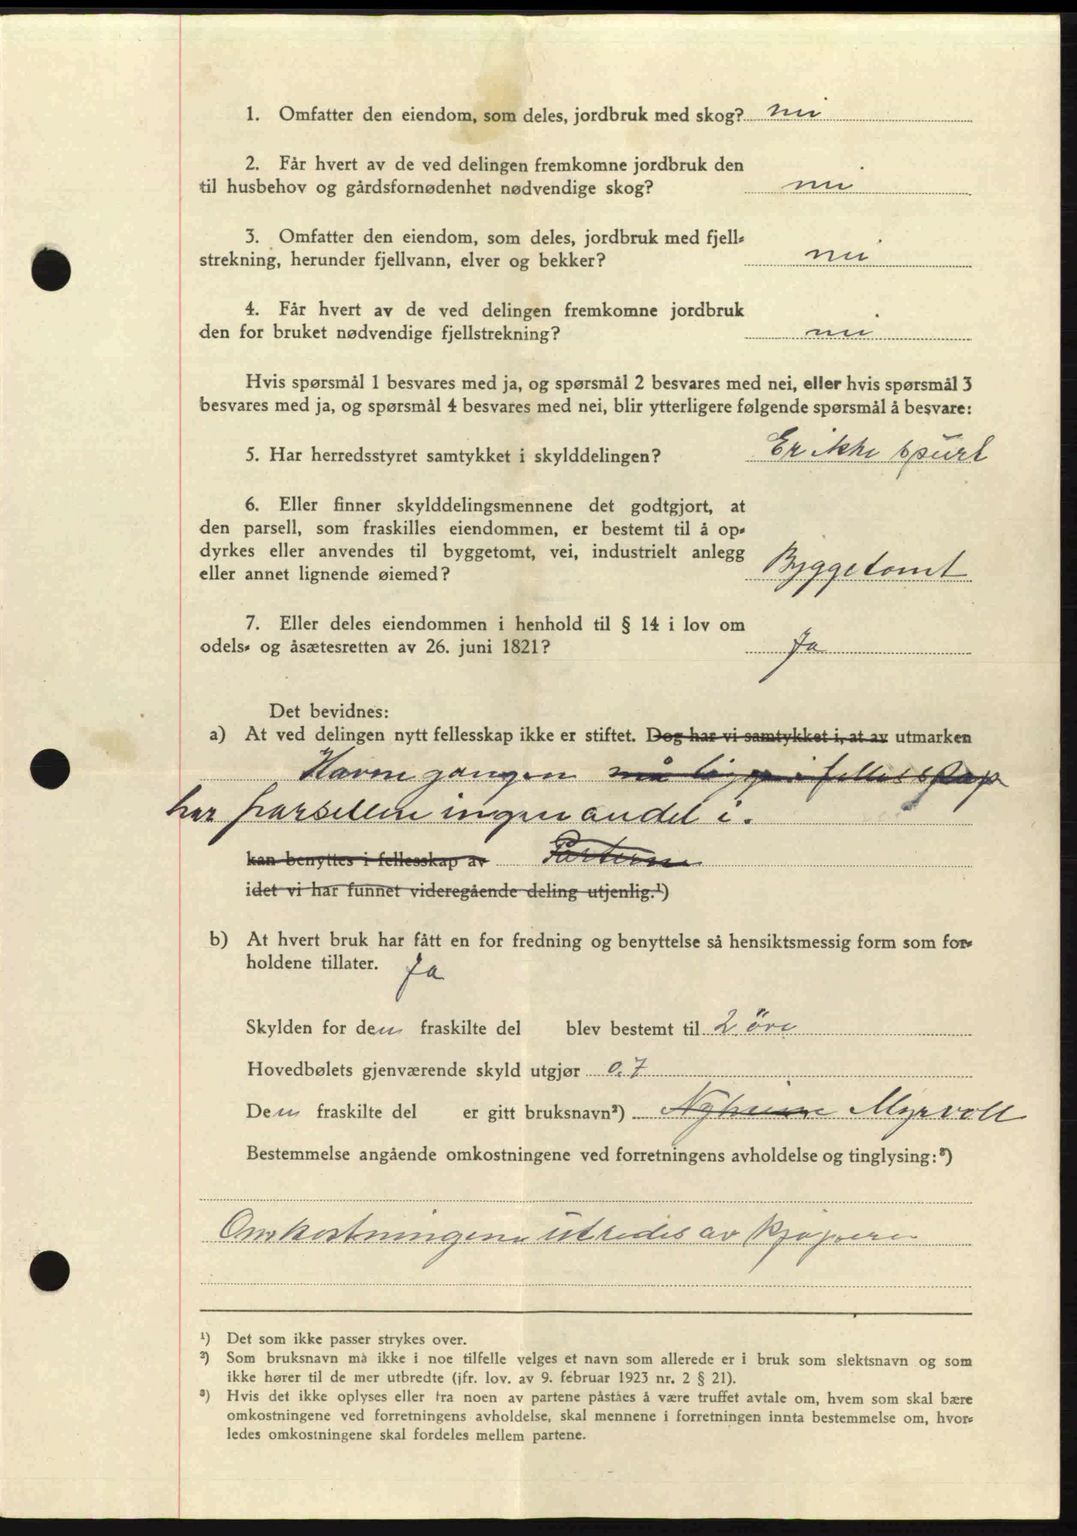 1. Omfatter den eiendom, som deles, jordbruk med skog? nei
2. Får hvert av de ved delingen fremkomne jordbruk den
til husbehov og gårdsfornødenhet nødvendige skog? nei
3. Omfatter den eiendom, som deles, jordbruk med fjell-
strekning, herunder fjellvann, elver og bekker? nei
4. Får hvert av de ved delingen fremkomne jordbruk
den for bruket nødvendige fjellstrekning? nei
Hvis spørsmål 1 besvares med ja, og spørsmål 2 besvares med nei, eller hvis spørsmål 3
besvares med ja, og spørsmål 4 besvares med nei, blir ytterligere følgende spørsmål å besvare:
5. Har herredsstyret samtykket i skylddelingen? Er ikke spurt
6. Eller finner skylddelingsmennene det godtgjort, at
den parsell, som fraskilles eiendommen, er bestemt til å op-
dyrkes eller anvendes til byggetomt, vei, industrielt anlegg
eller annet lignende øiemed? Byggetomt
7. Eller deles eiendommen i henhold til § 14 i lov om
odels- og åsætesretten av 26. juni 1821? Ja
Det bevidnes:
a) At ved delingen nytt fellesskap ikke er stiftet. Dog har vi samtykket i, at av utmarken
Havnegangen må ligge i fellesskap
har parsellen ingen andel i.
kan benyttes i fellesskap av Parterne
idet vi har funnet videregående deling utjenlig.¹)
b) At hvert bruk har fått en for fredning og benyttelse så hensiktsmessig form som for-
holdene tillater. Ja
Skylden for den fraskilte del blev bestemt til 2 öre
Hovedbølets gjenværende skyld utgjør 0.7
Den fraskilte del er gitt bruksnavn²) Nyheim Myrvoll
Bestemmelse angående omkostningene ved forretningens avholdelse og tinglysing:³)
Omkostningene utredes av kjøperen
¹) Det som ikke passer strykes over.
²) Som bruksnavn må ikke i noe tilfelle velges et navn som allerede er i bruk som slektsnavn og som
ikke hører til de mer utbredte (jfr. lov. av 9. februar 1923 nr. 2 § 21).
³) Hvis det ikke oplyses eller fra noen av partene påståes å være truffet avtale om, hvem som skal bære
omkostningene ved forretningens avholdelse, skal mennene i forretningen innta bestemmelse om, hvor-
ledes omkostningene skal fordeles mellem partene.